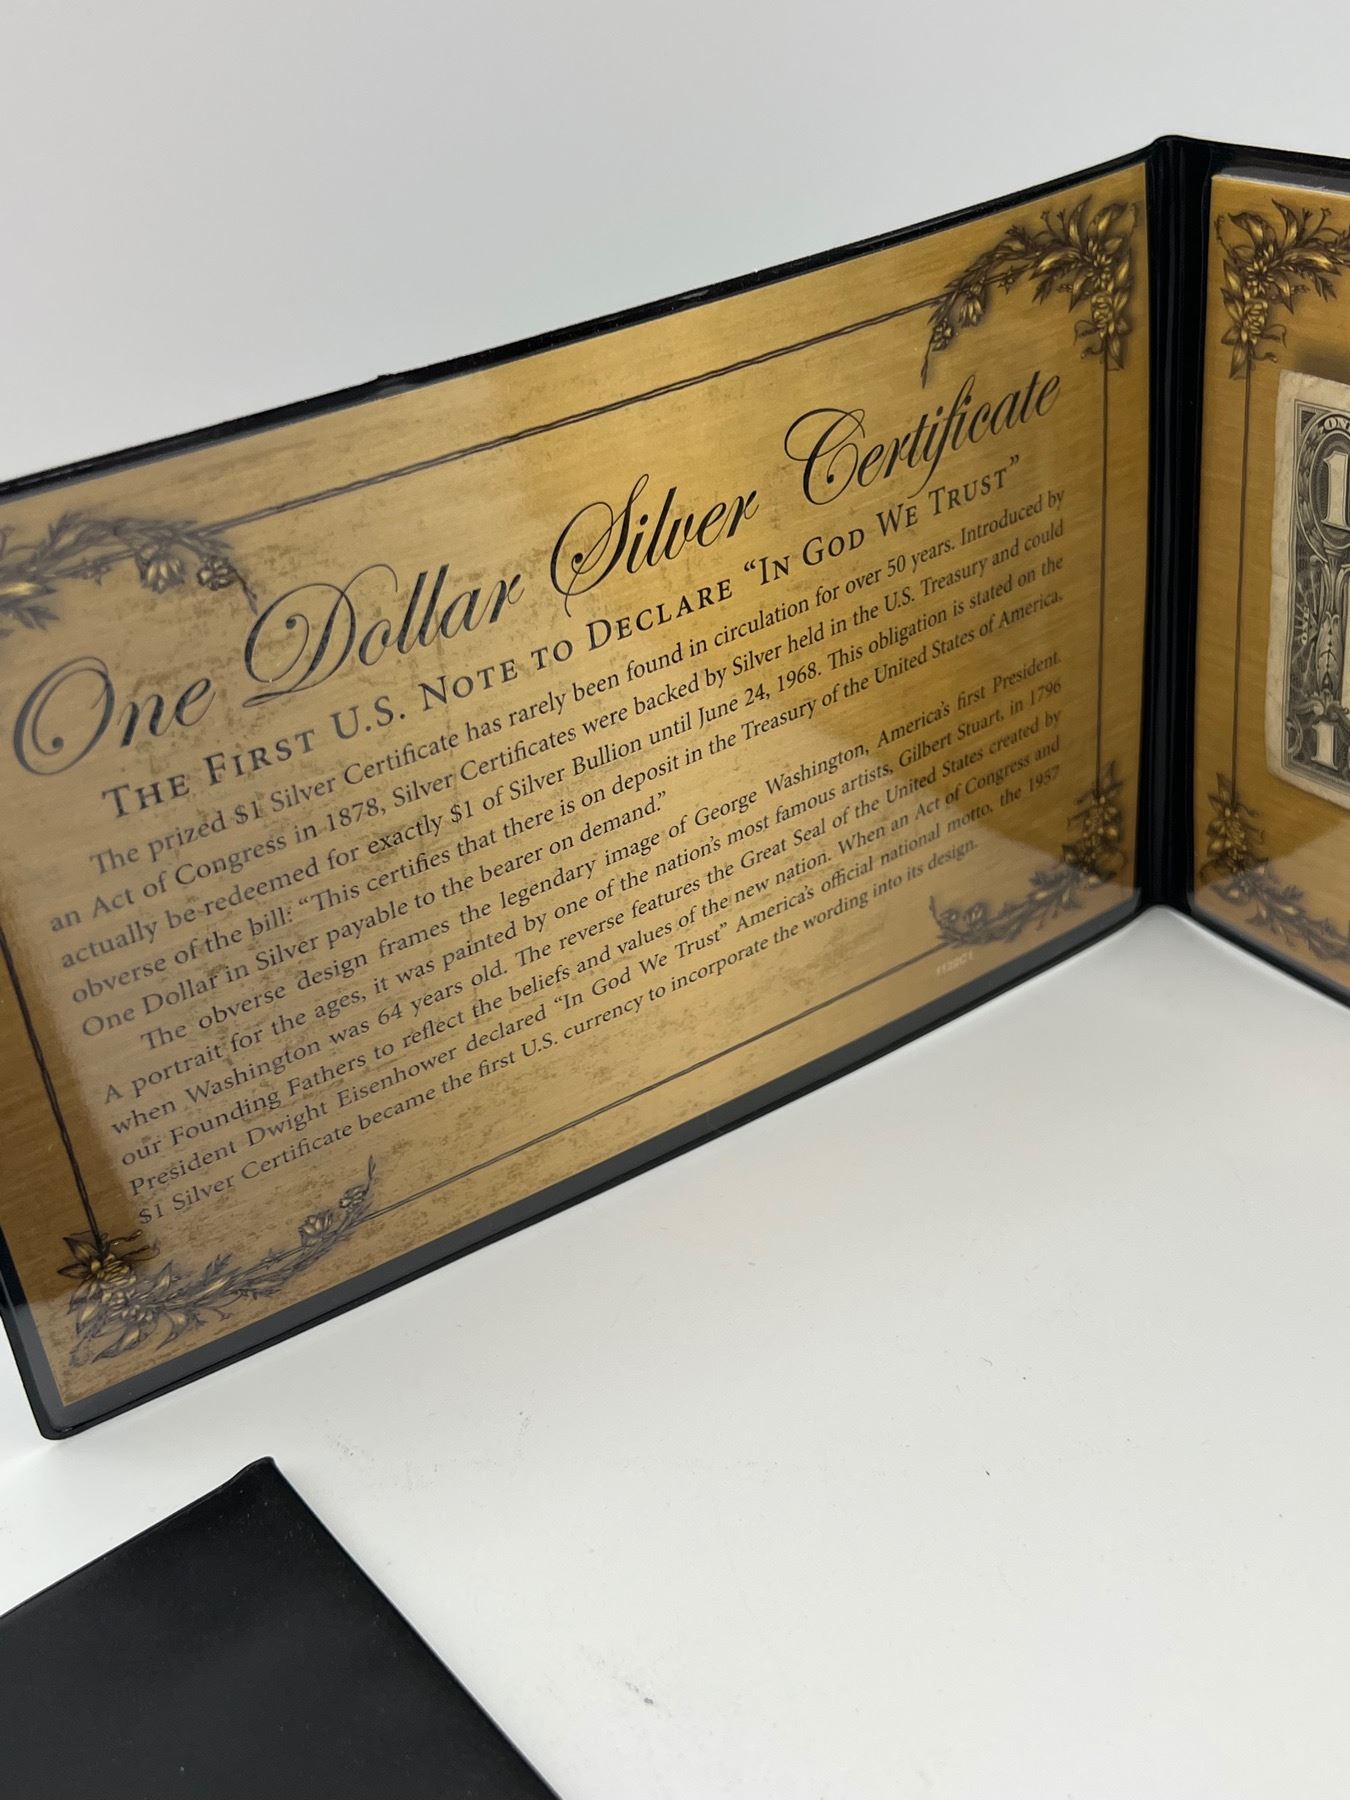 One Dollar Silver Certificate
THE FIRST U.S. NOTE TO DECLARE “IN GOD WE TRUST”
The prized $1 Silver Certificate has rarely been found in circulation for over 50 years. Introduced by
an Act of Congress in 1878, Silver Certificates were backed by Silver held in the U.S. Treasury and could
actually be redeemed for exactly $1 of Silver Bullion until June 24, 1968. This obligation is stated on the
obverse of the bill: “This certifies that there is on deposit in the Treasury of the United States of America,
One Dollar in Silver payable to the bearer on demand.”
The obverse design frames the legendary image of George Washington, America's first President.
A portrait for the ages, it was painted by one of the nation's most famous artists, Gilbert Stuart, in 1796
when Washington was 64 years old. The reverse features the Great Seal of the United States created by
our Founding Fathers to reflect the beliefs and values of the new nation. When an Act of Congress and
President Dwight Eisenhower declared “In God We Trust” America's official national motto, the 1957
$1 Silver Certificate became the first U.S. currency to incorporate the wording into its design.
1
1